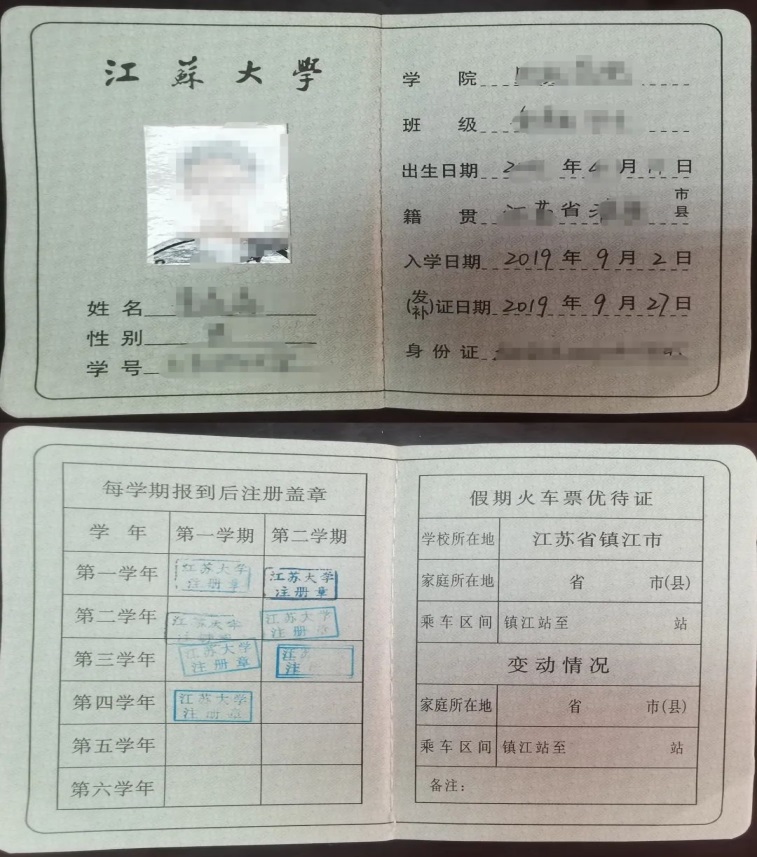 江蘇大學
姓名
性别
学号
学院
班级
出生日期 年 月 日
籍贯 苏省 市县
入学日期 2019年9月2日
(发补)证日期 2019年9月27日
身份证
每学期报到后注册盖章
学年 第一学期 第二学期
第一学年 江苏大学 注册章 江苏大学 注册章
第二学年 江苏大 江苏大学 注册
第三学年 江苏大学 注册章 江苏 注
第四学年 江苏大学 注册章
第五学年
第六学年
假期火车票优待证
学校所在地 江苏省镇江市
家庭所在地 省 市(县)
乘车区间 镇江站至 站
变动情况
家庭所在地 省 市(县)
乘车区间 镇江站至 站
备注: